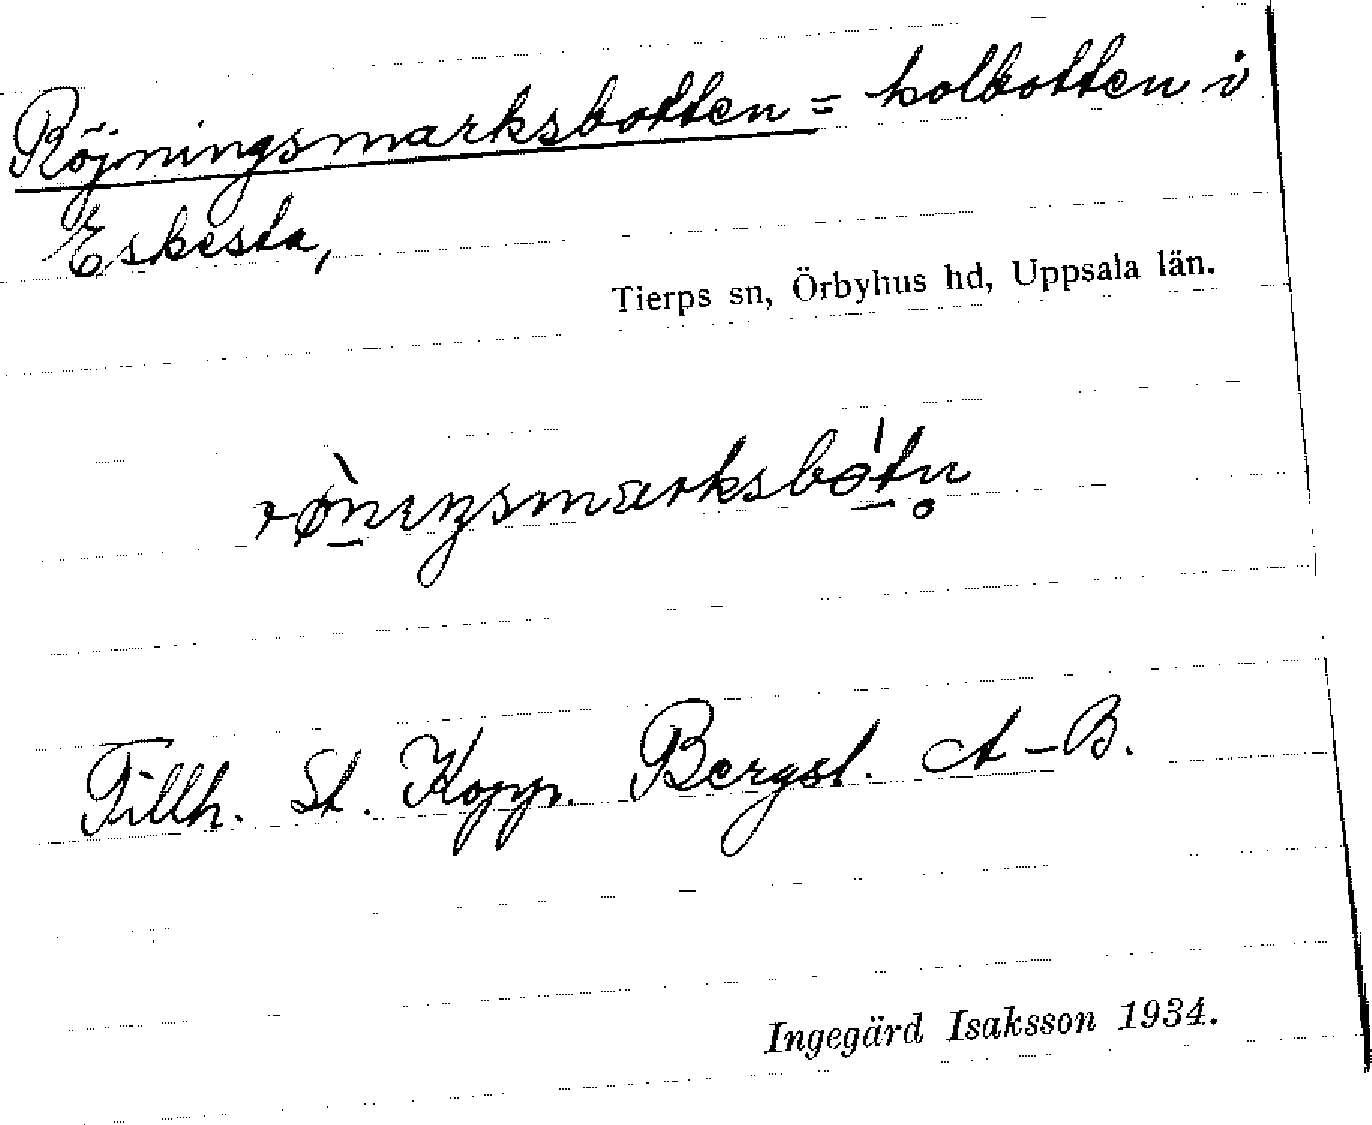 Röjningsmarksbotten = kolbotten i
Eskesta,
Tierps sn, Örbyhus hd, Uppsala län.
Tillh. St. Kopp. Bergsl. A-B.
Ingegärd Isaksson 1934.